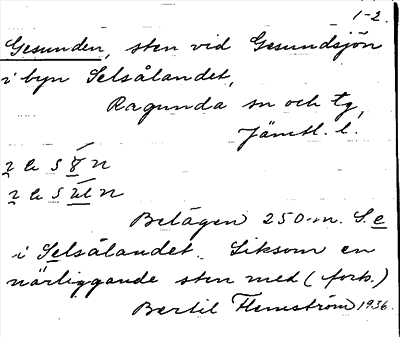 1-2.
Gesunden, sten vid Gesundsjön
i byn Selsålandet,
Ragunda sn och tg,
Jämtl. l.
Belägen 250 m. S.e
i Selsålandet. Liksom en
närliggande sten med (forts.)
Bertil Flemström 1936.